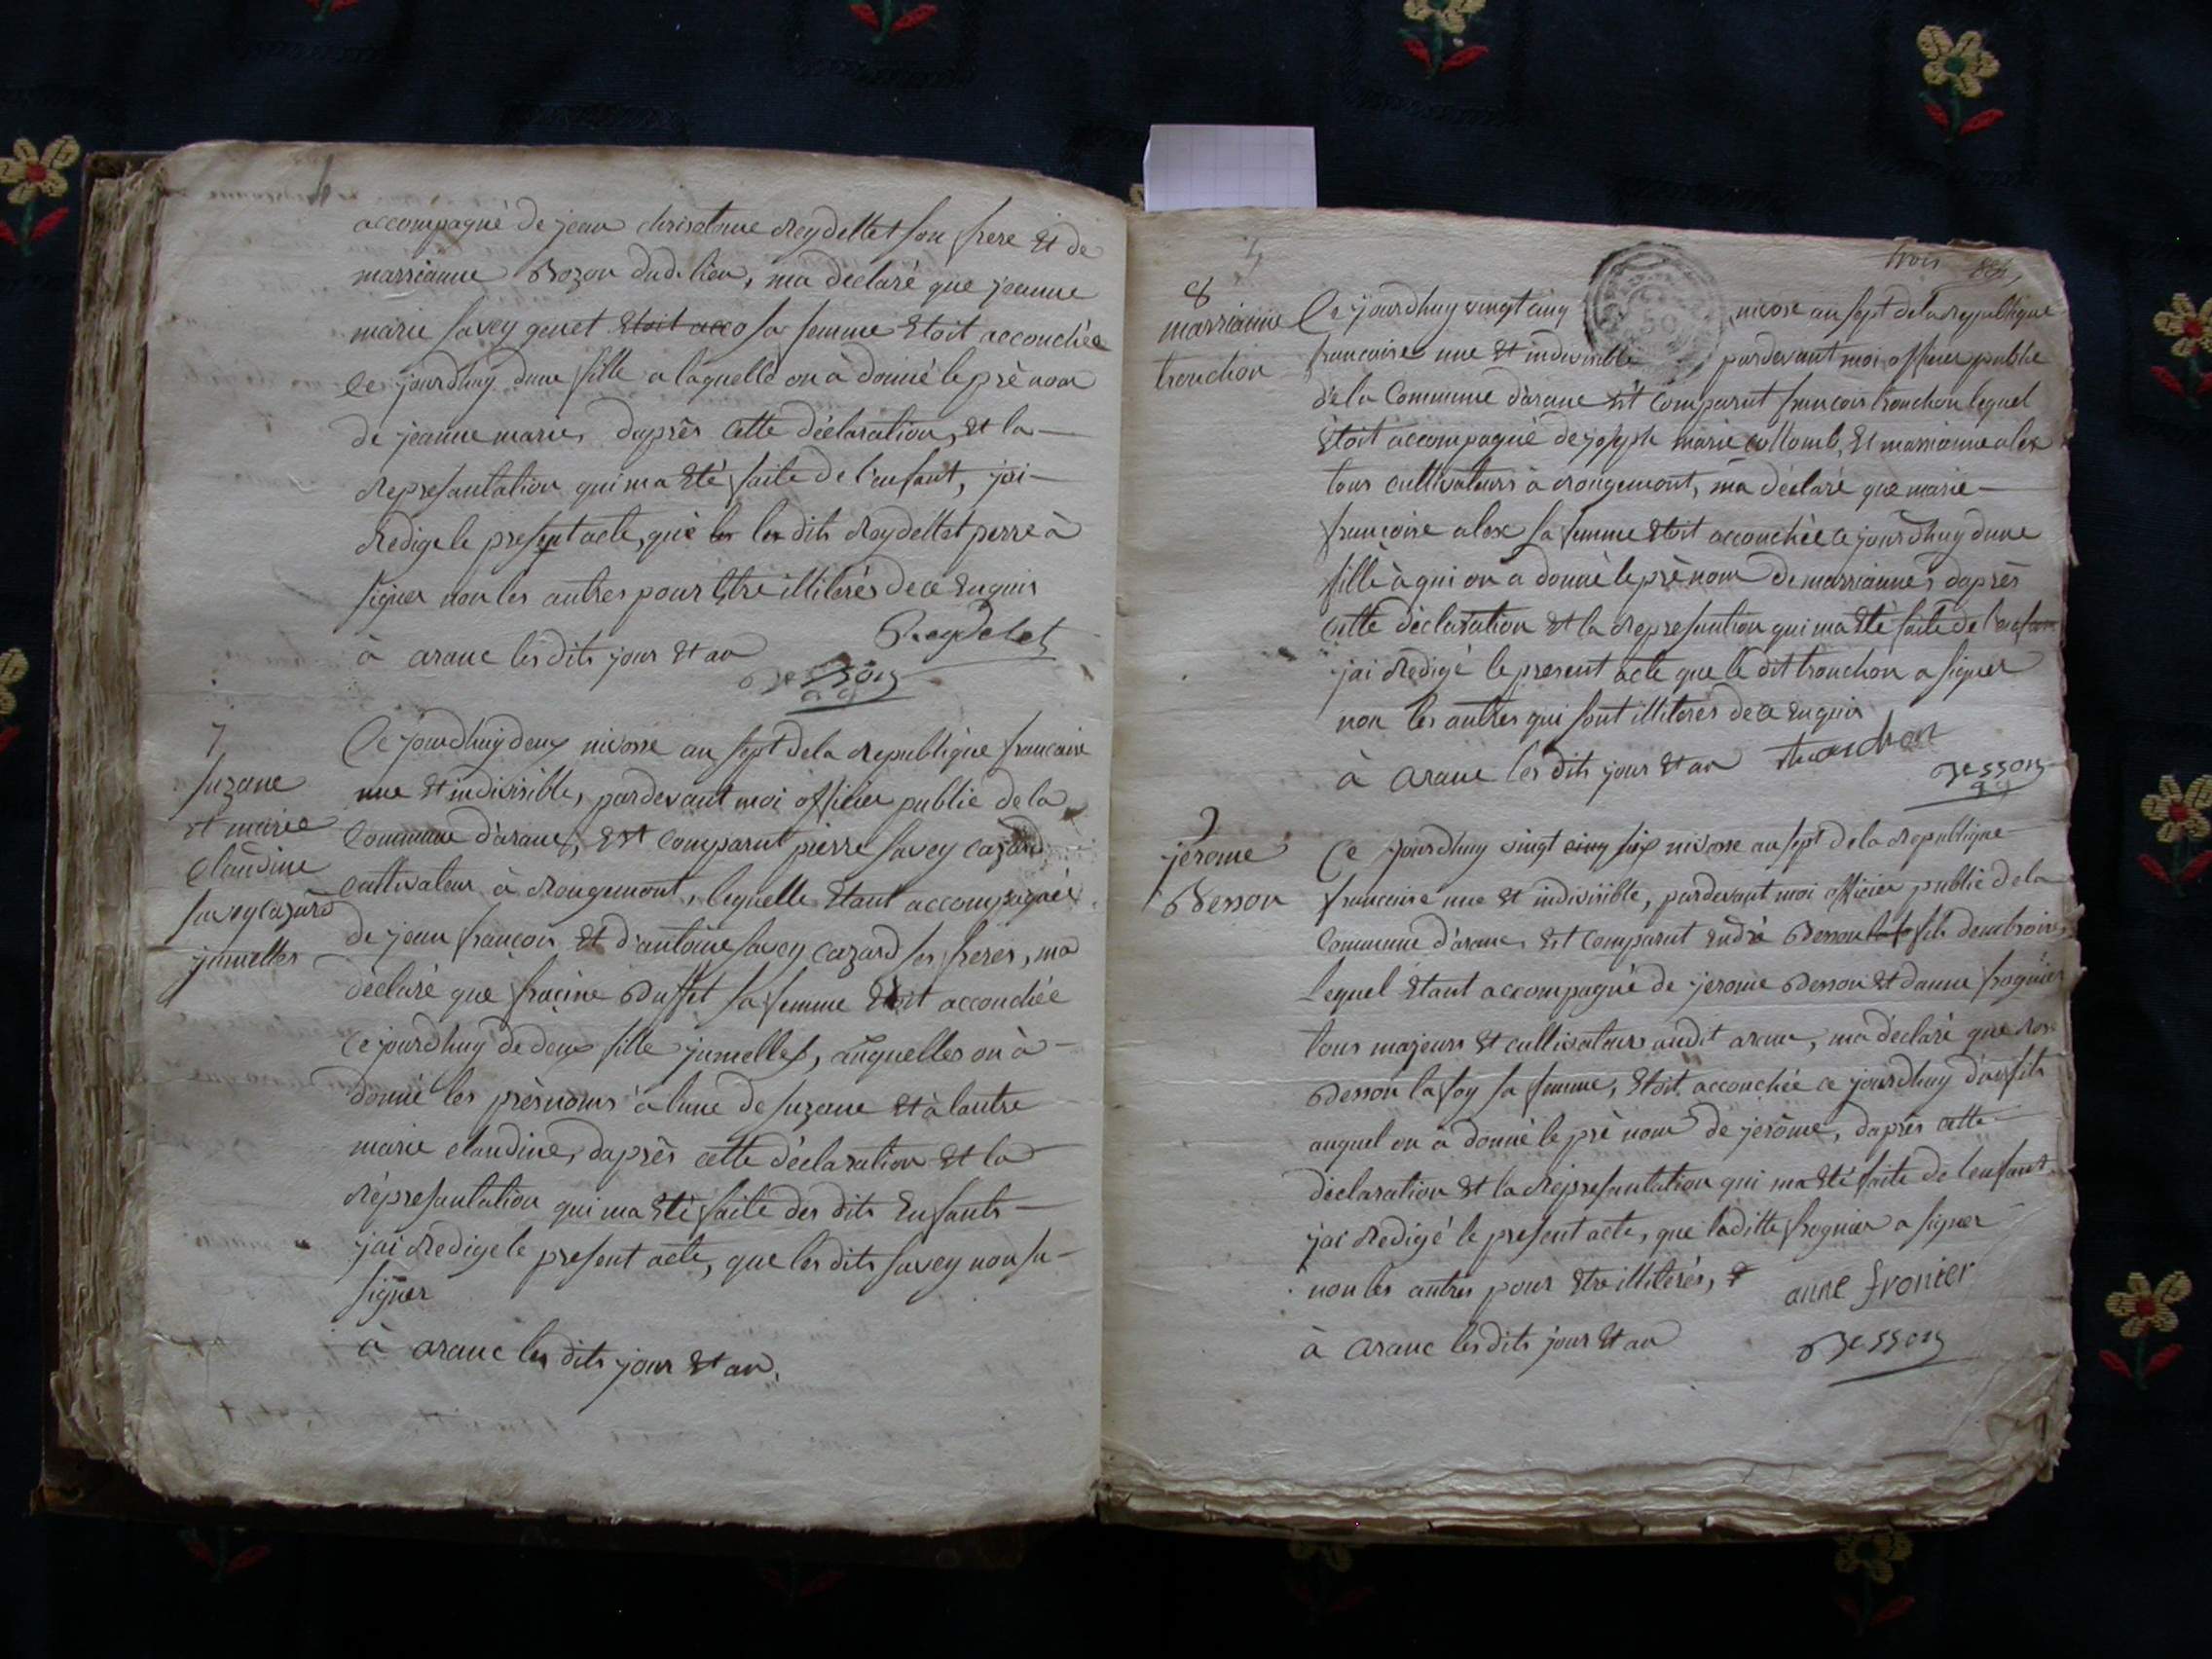 accompagné de jean chrisostome Reydellet son frere Et de
marrianne Bozon dud. lieu, ma declaré que jeanne
marie savey genet Etoit acco sa femme Etoit accouchée
Ce jourdhuy dune fille a laquelle on à donné le prè nom
de jeanne marie, daprès Cette déclaration, Et la
Representation qui ma Eté faite de l'enfant, jai
Redige le present acte, que les dits Reydellet perre à
signer non les autres pour Etre illiterés de ce Enquis
à aranc les dits jour Et an
Reydelet
Besson
7
suzane
et marie
Claudine
savey Cazard
jumelles
Ce jourdhuy deux nivose an sept de la Republique francaise
une Et indivisible, pardevant moi officier public de la
Commune d'aranc, Est Comparut pierre savey cazard
Cultivateur à Rougemont, lequelle Etant accompagné
de jean francois Et d'antoine savey cazard ses freres, ma
declaré que fracine Buffet sa femme Etoit accouchée
Ce jourdhuy de deux fille jumelles, auquelles on à
donné les prèsnoms a lune de suzane Et à lautre
marie claudine, daprès cette déclaration Et la
répresantation qui ma Eté faite des dits Enfants
jai Redige le present acte, que les dits savey non su
signer
à aranc les dits jour Et an,
trois
8
marrianne
trouchon
Ce jourdhuy vingt cinq nivose an sept de la Republique
francaise une Et indivisible pardevant moi officier public
de la Commune d'aranc Est Comparut francois trouchon lequel
Etoit accompagné de joseph marie collomb, Et marrianne alex
tous cultivateurs à Rougemont, ma déclaré que marie
francoise alex sa femme Etoit accouchée ce jourdhuy dune
fille à qui on a donné le prè nom de marrianne, daprès
Cette déclaration Et la Represantion qui ma Eté faite de l'enfant
jai Redigé le present acte que le dit trouchon a signer
non les autres qui sont illiterés de ce Enquis
à aranc les dits jour Et an
trouchon
Besson
9
jerome
Besson
Ce jourdhuy vingt cinq six nivose an sept de la Republique
francaise une Et indivisible, pardevant moi officier public de la
Commune d'aranc, Est Comparut Endré Besson fils dembroise,
Lequel Etant accompagné de jerome Besson Et danne frognier
tous majeurs Et cultivateurs audit aranc, ma déclaré que Rose
Besson la foy sa femme, Etoit accouchée ce jourdhuy d'un fils
auquel on à donné le prè nom de jerôme, daprès cette
déclaration Et la Représentation qui ma Eté faite de lenfant
jai Redigé le present acte, que laditte frognier a signer
non les autres pour Etre illiterés, &
à aranc les dits jour Et an
anne fronier
Besson